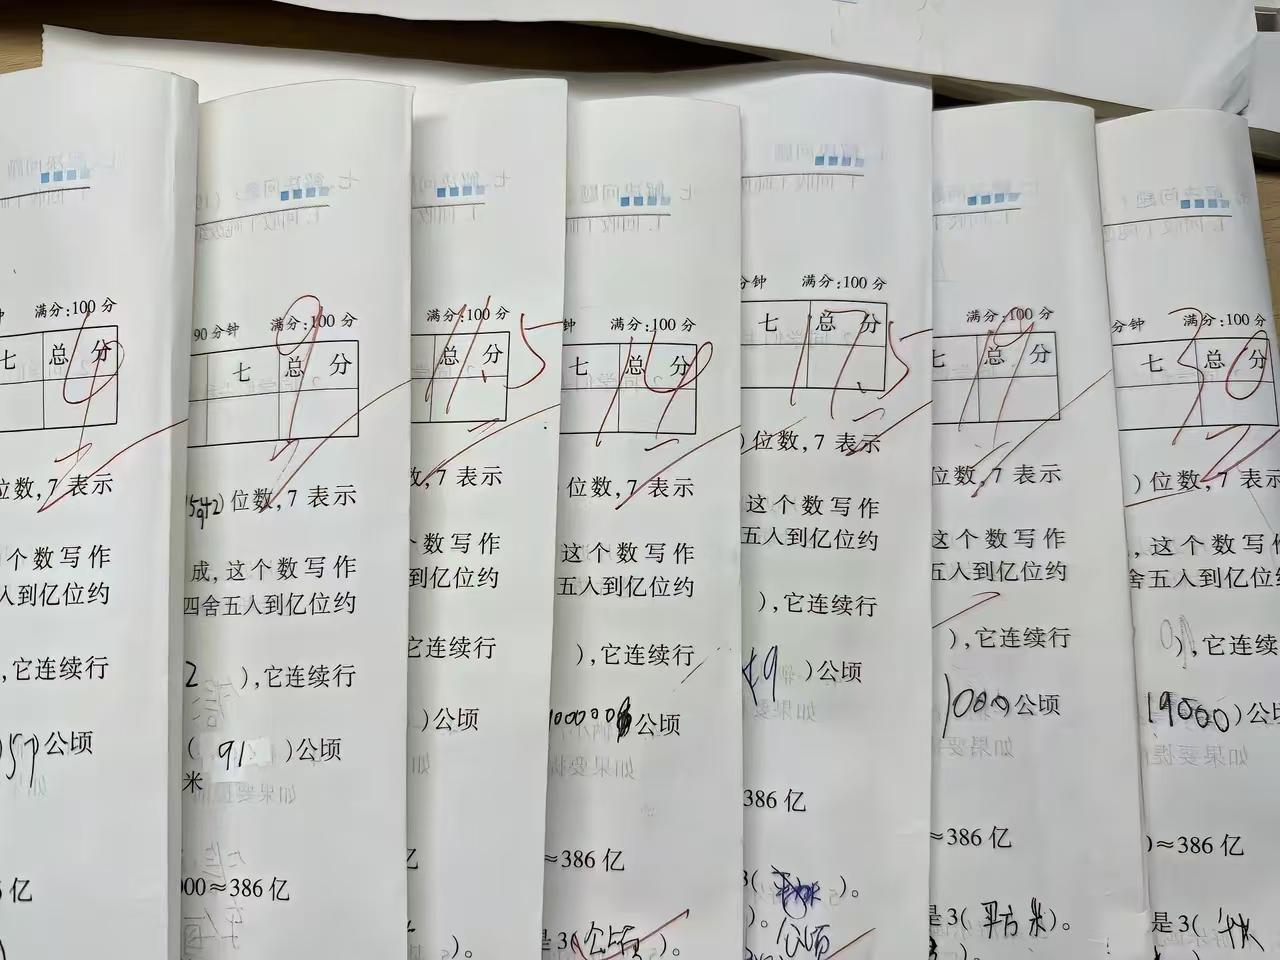 钟 满分:100 分
七 总 分
9
位数,7 表示
个数写作
入到亿位约
,它连续行
57)公顷
亿
90分钟 满分:100 分
七 总 分
9
)位数,7 表示
成,这个数写作
四舍五入到亿位约
2 ),它连续行
( 91 )公顷
米
00≈386 亿
满分:100 分
总 分
11.5
数,7 表示
个数写作
到亿位约
它连续行
)公顷
亿
)。
钟 满分:100 分
七 总 分
位数,7 表示
这个数写作
五入到亿位约
),它连续行
公顷
≈386 亿
是3(公顷)。
分钟 满分:100 分
七 总 分
17.5
)位数,7 表示
这个数写作
五入到亿位约
),它连续行
49 )公顷
386 亿
3( )。
)。
公顷
满分:100 分
七 总 分
19
位数,7 表示
这个数写作
五入到亿位约
),它连续行
1000)公顷
≈386 亿
是3(平方米)。
分钟 满分:100 分
七 总 分
30
)位数,7 表示
,这个数写作
舍五入到亿位约
),它连续行
19000)公顷
)≈386 亿
是3(